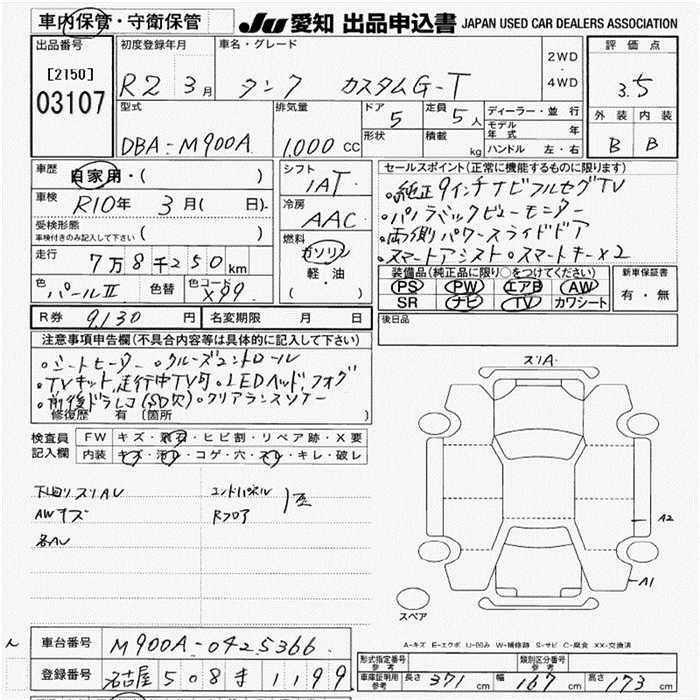 車内保管・守衛保管
JU 愛知 出品申込書 JAPAN USED CAR DEALERS ASSOCIATION
出品番号
[2150]
03107
初度登録年月
R2 3月
車名・グレード
タンク カスタムG-T
2WD
・
4WD
評価点
3.5
外装 内装
B B
型式
DBA-M900A
排気量
1,000 CC
ドア
5
定員
5人
形状
積載
kg
ディーラー・並行
モデル年式 年
ハンドル 左・右
車歴
自家用・( )
車検
R10年 3月( 日)
受検形態
車検付きのみ記入して下さい ( )
走行
7万8千250km
色
パールII
色替
色コード
X99
シフト
IAT
冷房
AAC
燃料
ガソリン
軽・油
( )
セールスポイント(正常に機能するものに限ります)
・純正9インチナビフルセグTV
・パノラミックビューモニター
・両側パワースライドドア
・スマートアシスト ・スマートキー×2
装備品(純正品に限り○をつけてください)
PS PW エアB AW
SR ナビ TV カワシート
新車保証書
有・無
R券 9,130 円
名変期限 月 日
後日品
注意事項申告欄(不具合内容等は具体的に記入して下さい)
・シートヒーター ・クルーズコントロール
・TVキット,走行中TV可 ・LEDヘッド,フォグ
・前後ドラレコ(SD欠) ・クリアランスソナー
修復歴 有 (箇所 )
検査員記入欄
FW キズ・飛石・ヒビ割・リペア跡・X要
内装 キズ・汚れ・コゲ・穴・スレ・キレ・破レ
下回りスリAU
AWキズ
各AU
エンドパネル
Rフロア
スリA.
A2
A1
スペア
A-キズ E-エクボ U-凹み W-補修跡 S-サビ C-腐食 XX-交換済
車台番号 M900A-0425366
登録番号 名古屋 508 す 1199
形式指定番号
参考
類別区分番号
参考
車庫証明用
参考
長さ 371 cm 幅 167 cm 高さ 173 cm